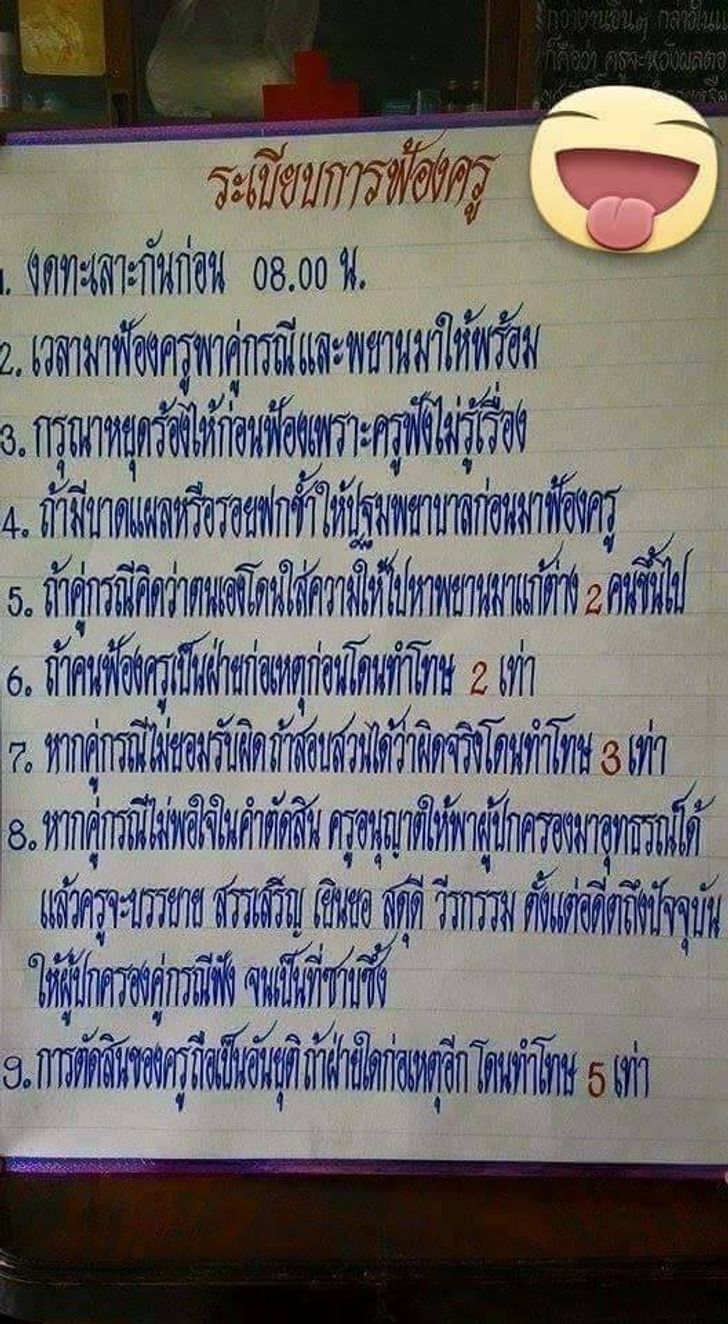 ระเบียบการฟ้องครู
1. งดทะเลาะกันก่อน 08.00 น.
2. เวลามาฟ้องครูพาคู่กรณีและพยานมาให้พร้อม
3. กรุณาหยุดร้องไห้ก่อนฟ้องเพราะครูฟังไม่รู้เรื่อง
4. ถ้ามีบาดแผลหรือรอยฟกช้ำให้ปฐมพยาบาลก่อนมาฟ้องครู
5. ถ้าคู่กรณีคิดว่าตนเองโดนใส่ความให้ไปหาพยานมาแก้ต่าง 2 คนขึ้นไป
6. ถ้าคนฟ้องครูเป็นฝ่ายก่อเหตุก่อนโดนทำโทษ 2 เท่า
7. หากคู่กรณีไม่ยอมรับผิด ถ้าสอบสวนได้ว่าผิดจริงโดนทำโทษ 3 เท่า
8. หากคู่กรณีไม่พอใจในคำตัดสิน ครูอนุญาตให้พาผู้ปกครองมาอุทธรณ์ได้
แล้วครูจะบรรยาย สรรเสริญ เยินยอ สดุดี วีรกรรม ตั้งแต่อดีตถึงปัจจุบัน
ให้ผู้ปกครองคู่กรณีฟัง จนเป็นที่ซาบซึ้ง
9. การตัดสินของครูถือเป็นอันยุติ ถ้าฝ่ายใดก่อเหตุอีก โดนทำโทษ 5 เท่า